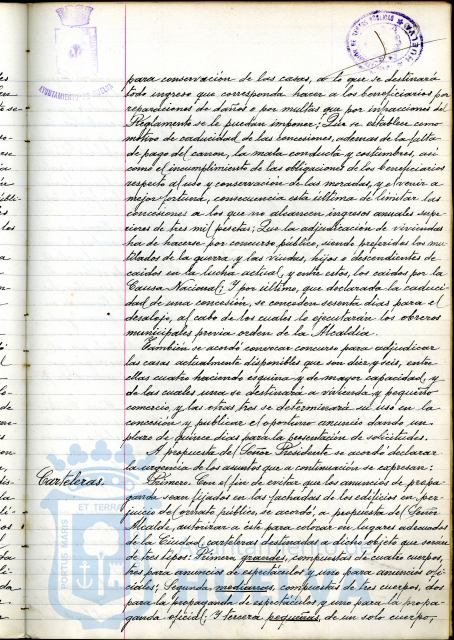 AYUNTAMIENTO DE HUELVA
HUELVA
para conservación de las casas, a lo que se destinará
todo ingreso que corresponda hacer a los beneficiarios por
reparaciones de daños o por multas que por infracciones del
Reglamento se le puedan imponer; Que se establece como
motivo de caducidad de las concesiones, ademas de la falta
de pago del canon, la mala conducta y costumbres, asi
como el incumplimiento de las obligaciones de los beneficiarios
respecto al uso y conservación de las moradas, y el venir a
mejor fortuna, consecuencia esta última de limitar las
concesiones a los que no alcancen ingresos anuales supe-
riores de tres mil pesetas; Que la adjudicación de viviendas
ha de hacerse por concurso público, siendo preferidos los mu-
tilados de la guerra, y las viudas, hijos o descendientes de
caidos en la lucha actual, y entre estos, los caidos por la
Causa Nacional; Y por último, que declarada la caduci-
dad de una concesión, se conceden sesenta dias para el
desalojo, al cabo de los cuales lo ejecutarán los obreros
municipales previa orden de la Alcaldia.
Tambien se acordó convocar concurso para adjudicar
las casas actualmente disponibles que son diez y seis, entre
ellas cuatro haciendo esquina y de mayor capacidad, y
de las cuales una se destinará a vivienda y pequeño
comercio, y las otras tres se determinará su uso en la
concesión y publicar el oportuno anuncio dando un
plazo de quince dias para la presentación de solicitudes.
A propuesta del Señor Presidente se acordó declarar
la urgencia de los asuntos que a continuación se expresan:
Carteleras.
Primero. Con el fin de evitar que los anuncios de propa-
ganda sean fijados en las fachadas de los edificios en per-
juicio del ornato público, se acordó, a propuesta del Señor
Alcalde, autorizar a éste para colocar en lugares adecuados
de la Ciudad, carteleras destinadas a dicho objeto que serán
de tres tipos: Primera, grandes, compuestas de cuatro cuerpos,
tres para anuncios de espectáculos y uno para anuncios ofi-
ciales; Segunda, medianas, compuestas de tres cuerpos, dos
para la propaganda de espectáculos, y uno para la propa-
ganda oficial; Y tercera pequeñas, de un solo cuerpo,
PORTUS MARIS ET TERRAE